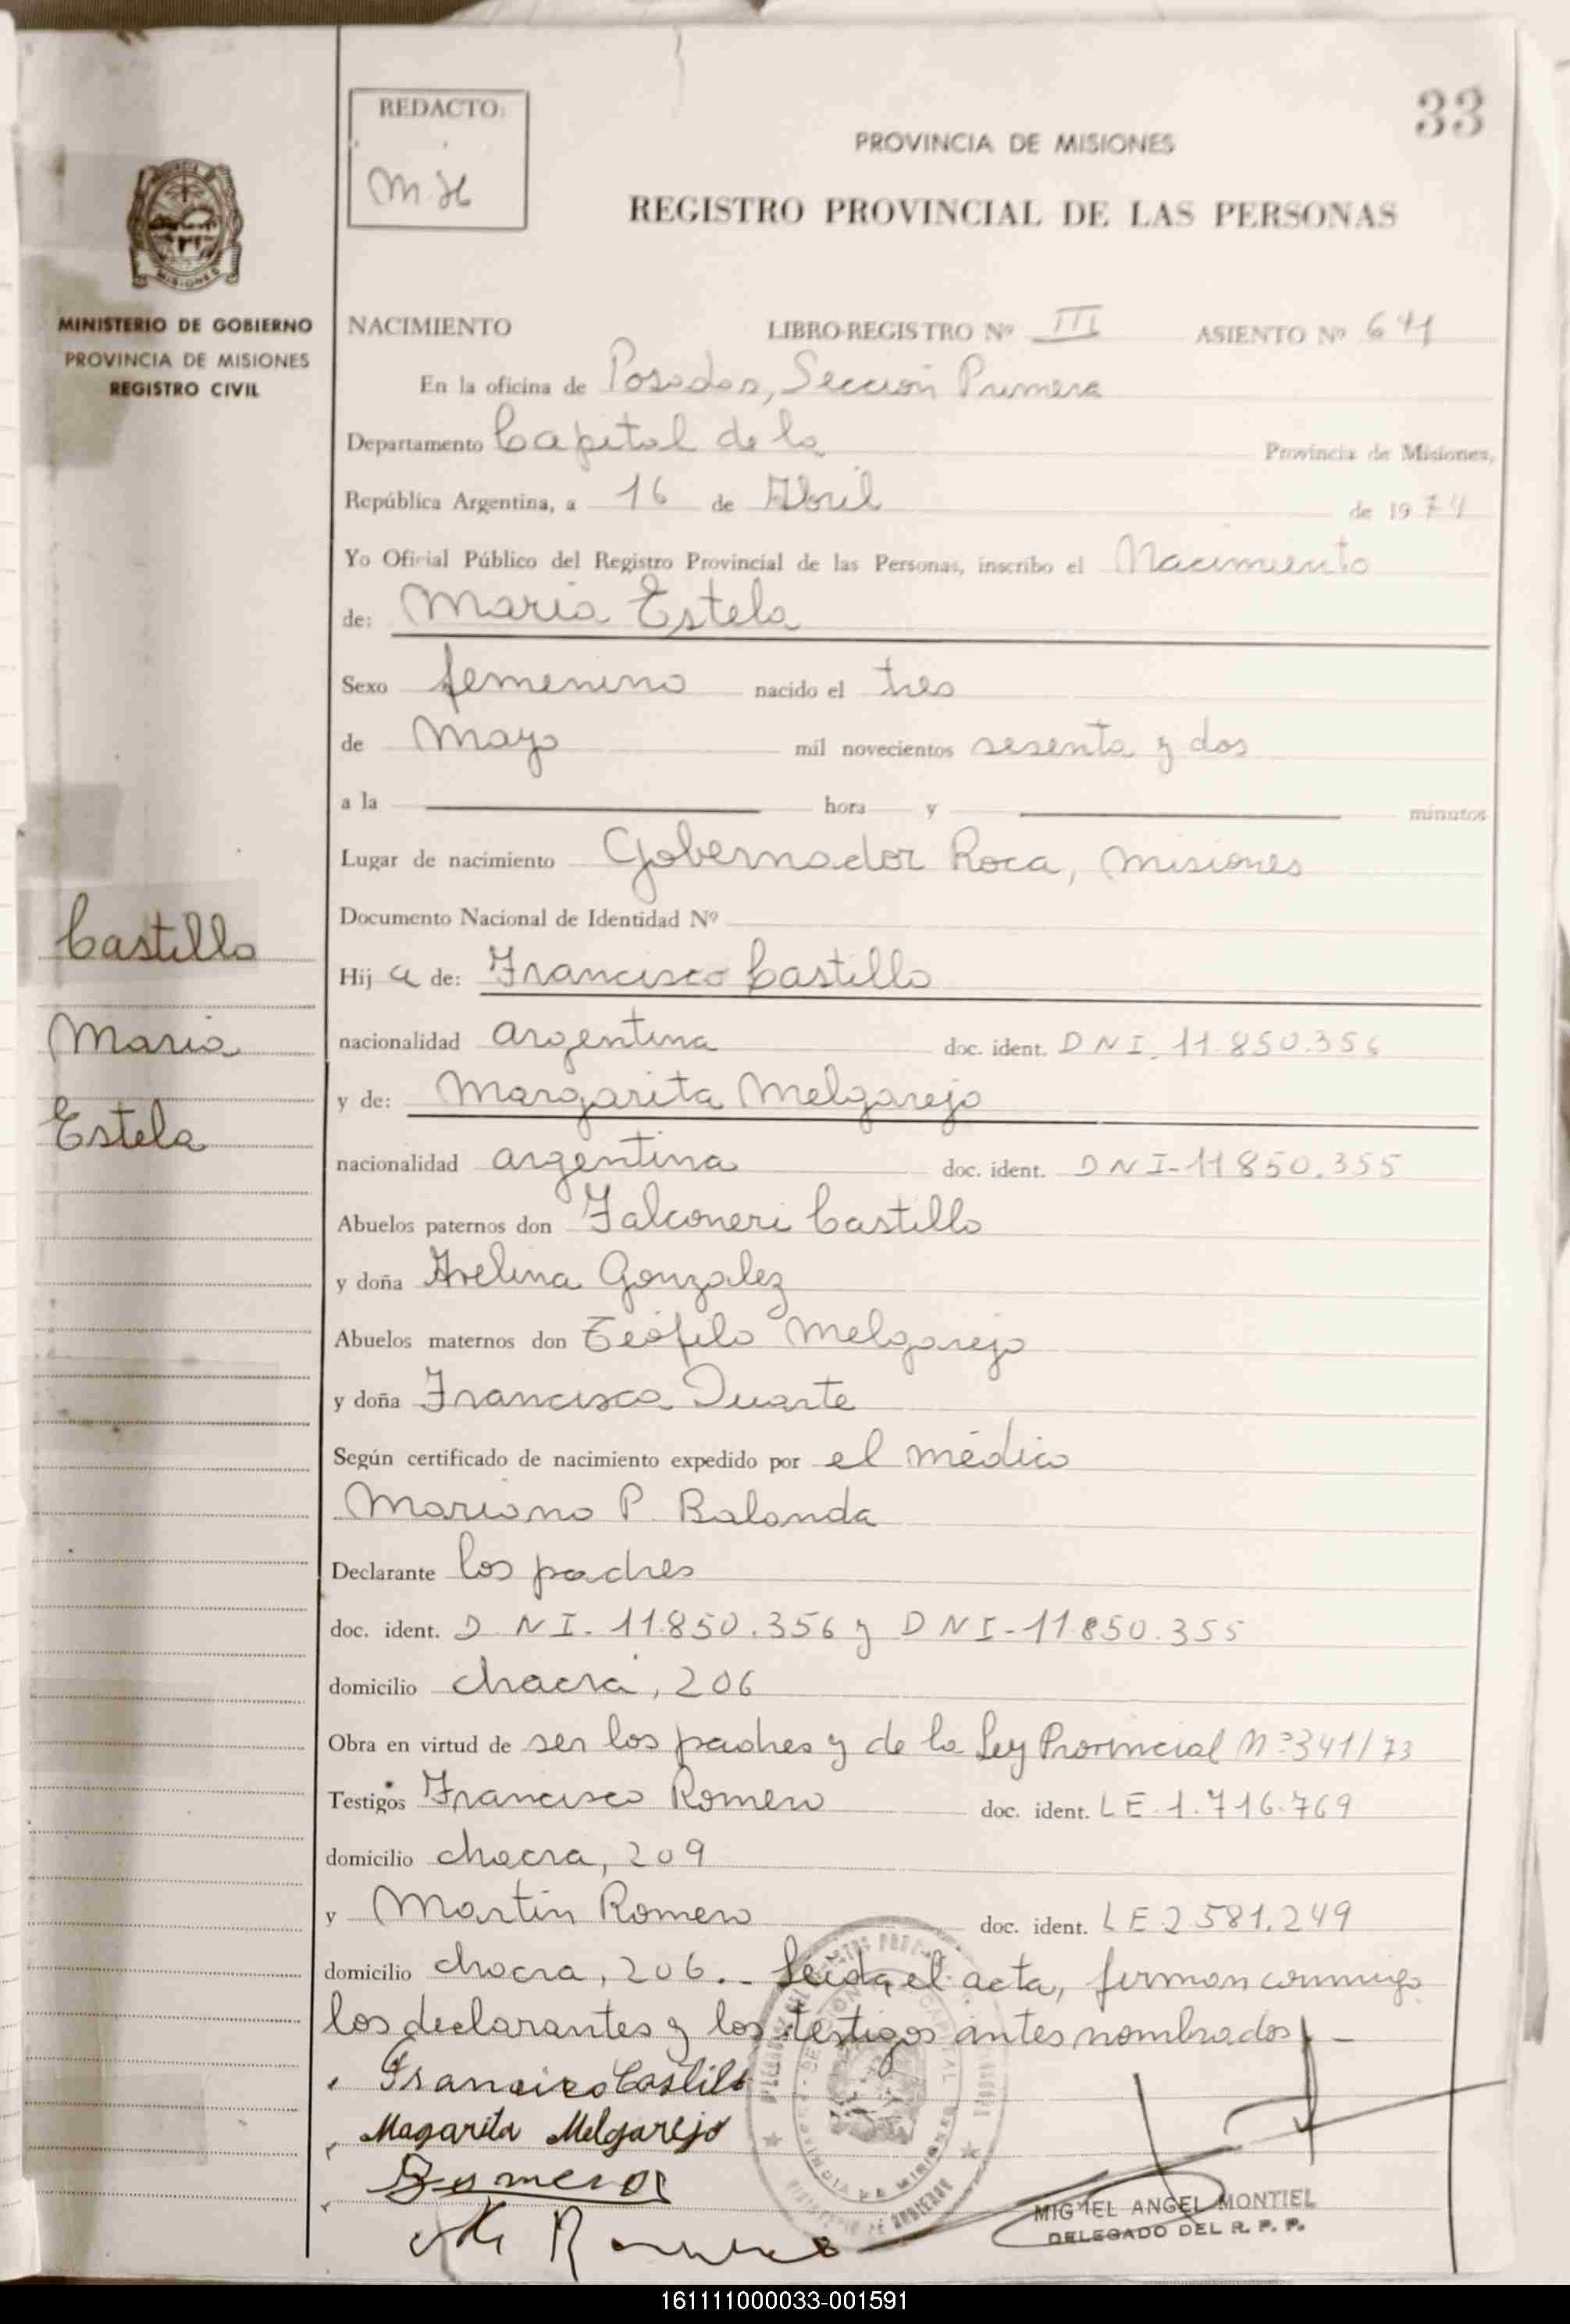 33
REDACTO:
M.H
PROVINCIA DE MISIONES
REGISTRO PROVINCIAL DE LAS PERSONAS
MINISTERIO DE GOBIERNO
PROVINCIA DE MISIONES
REGISTRO CIVIL
NACIMIENTO LIBRO-REGISTRO Nº III ASIENTO Nº 641
En la oficina de Posadas, Sección Primera
Departamento Capital de la Provincia de Misiones,
República Argentina, a 16 de Abril de 1974
Yo Oficial Público del Registro Provincial de las Personas, inscribo el Nacimiento
de: Maria Estela
Sexo femenino nacido el tres
de Mayo mil novecientos sesenta y dos
a la hora y minutos
Lugar de nacimiento Gobernador Roca, Misiones
Documento Nacional de Identidad Nº
Castillo
Maria
Estela
Hij a de: Francisco Castillo
nacionalidad argentina doc. ident. DNI. 11.850.356
y de: Margarita Melgarejo
nacionalidad argentina doc. ident. DNI-11850.355
Abuelos paternos don Falconeri Castillo
y doña Avelina Gonzalez
Abuelos maternos don Teófilo Melgarejo
y doña Francisca Duarte
Según certificado de nacimiento expedido por el médico
Mariano P. Balanda
Declarante los padres
doc. ident. DNI-11.850.356 y DNI-11.850.355
domicilio chacra, 206
Obra en virtud de ser los padres y de la Ley Provincial Nº341/73
Testigos Francisco Romero doc. ident. LE.1.716.769
domicilio chacra, 209
y Martin Romero doc. ident. LE 2.581.249
domicilio chacra, 206.- Leida el acta, firman conmigo
los declarantes y los testigos antes nombrados.-
Francizco Castillo
Magarita Melgarejo
MIGUEL ANGEL MONTIEL
DELEGADO DEL R. P. P.
161111000033-001591